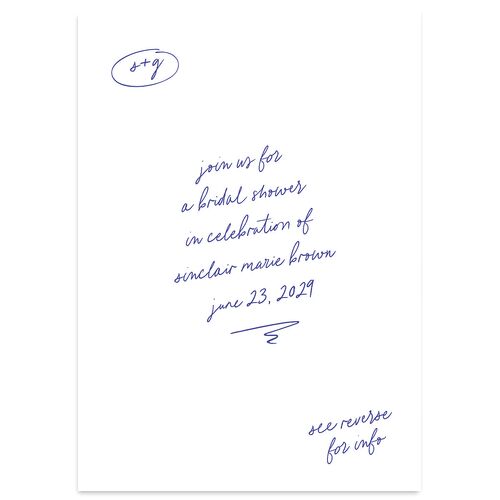 s+g
join us for
a bridal shower
in celebration of
sinclair marie brown
june 23, 2029
see reverse
for info